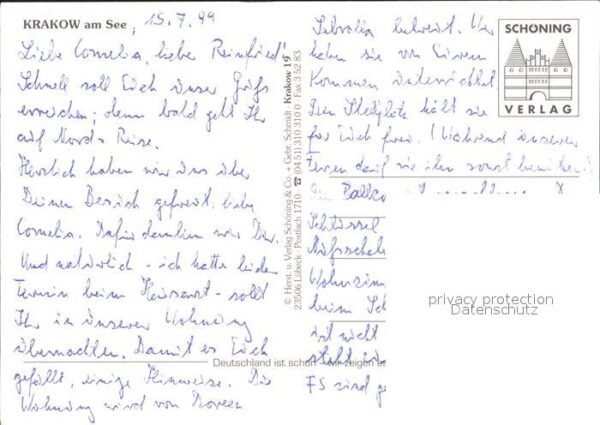 KRAKOW am See, 15.7.99
Liebe Cornelia, liebe Reinfried!
Schnell soll Euch unser Gruß
erreichen; denn bald geht Ihr
auf Nord-Reise.
Herzlich haben wir uns über
Deinen Besuch gefreut, liebe
Cornelia. Dafür danken wir Dir.
Und natürlich - ich hatte leider
Termin beim Hausarzt - sollt
Ihr in unserer Wohnung
übernachten. Damit es Euch
gefällt, einige Hinweise. Die
Wohnung wird von Doreen
Sebralla betreut. Wir
haben sie von Eurem
Kommen unterrichtet.
Den Stellplatz hält sie
für Euch frei. (Während unserer
Ferien darf sie ihn sonst benutzen)
Schlüssel
beim
ist nicht
steht
FS sind
SCHÖNING
VERLAG
© Herst. u. Verlag Schöning & Co. + Gebr. Schmidt Krakow 19
23506 Lübeck · Postfach 1710 · ☎ (0451) 310 310 0 · Fax 3 52 83
Deutschland ist schön - wir zeigen es
privacy protection
Datenschutz